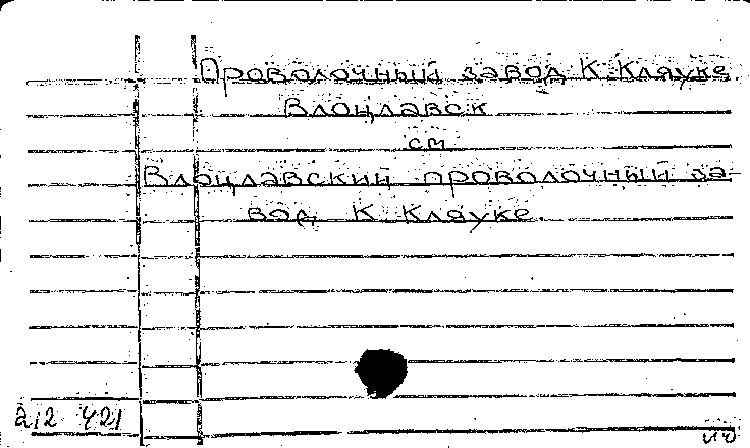 Проволочный завод К. Кляуке.
Влоцлавск
см
Влоцлавский проволочный за-
вод К. Кляуке.
212 421